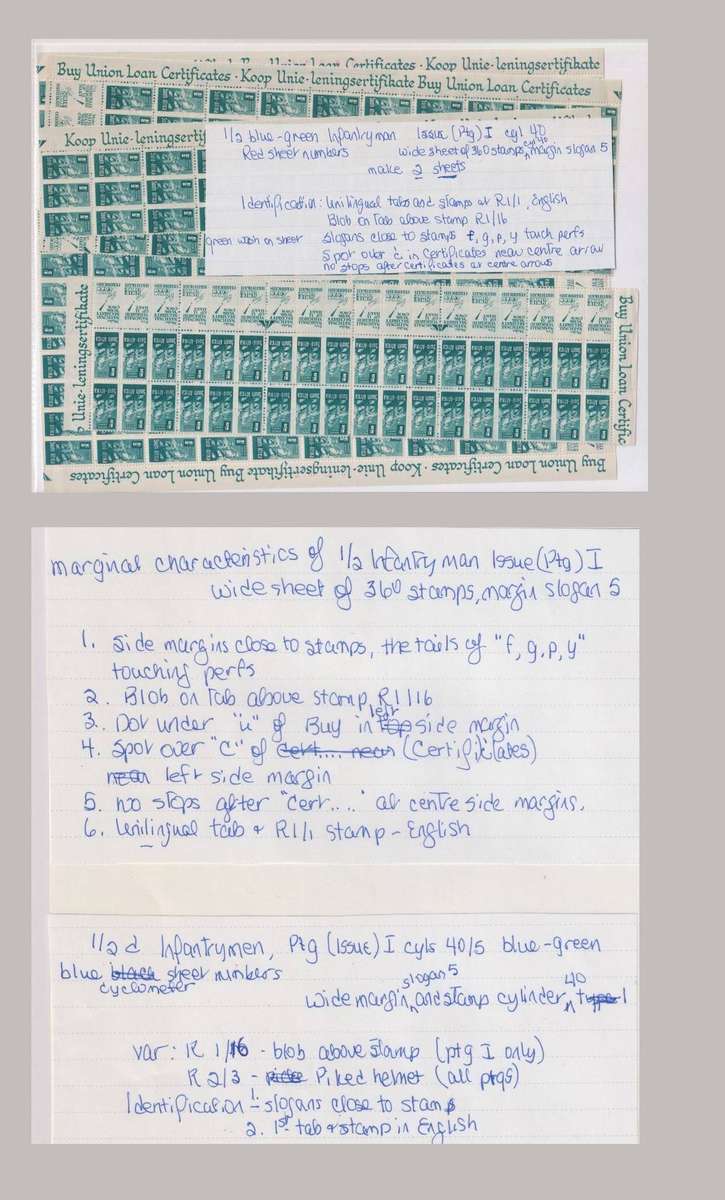 Buy Union Loan Certificates · Koop Unie-leningsertifikate Buy Union Loan Certificates · Koop Unie-leningsertifikate
Koop Unie-leningsertifikate Buy Union Loan Certificates
Koop Unie-leningsertif
1/2 blue-green Infantryman Issue (Ptg) I cyl 40
Red sheet numbers wide sheet of 360 stamps, cyl 40 margin slogan 5
make 2 sheets
Identification: Unilingual tabs and stamps at R1/1, English
Blob on Tab above stamp R1/16
green wash on sheet slogans close to stamps f, g, p, y touch perfs
Spot over c in Certificates near centre arrow
no stops after certificates at centre arrows
p Unie-leningsertifikate
Buy Union Loan Certific
Buy Union Loan Certificates · Koop Unie-leningsertifikate Buy Union Loan Certificates
marginal characteristics of 1/2 Infantryman Issue (Ptg) I
wide sheet of 360 stamps, margin slogan 5
1. Side margins close to stamps, the tails of "f, g, p, y"
touching perfs
2. Blob on Tab above stamp R1/16
3. Dot under "u" of Buy in left side margin
4. Spot over "C" of cert.... near (Certificates)
near left side margin
5. no stops after "cert...." at centre side margins.
6. Unilingual tab & R1/1 stamp - English
1/2 d Infantrymen, Ptg (Issue) I cyls 40/5 blue-green
blue black sheet numbers
cyclometer
wide margin, slogan 5 and stamp cylinder 40 type 1
var: R 1/16 - blob above stamp (ptg I only)
R 2/3 - Piked helmet (all ptgs)
Identification: 1. slogans close to stamps
2. 1st tab & stamp in English